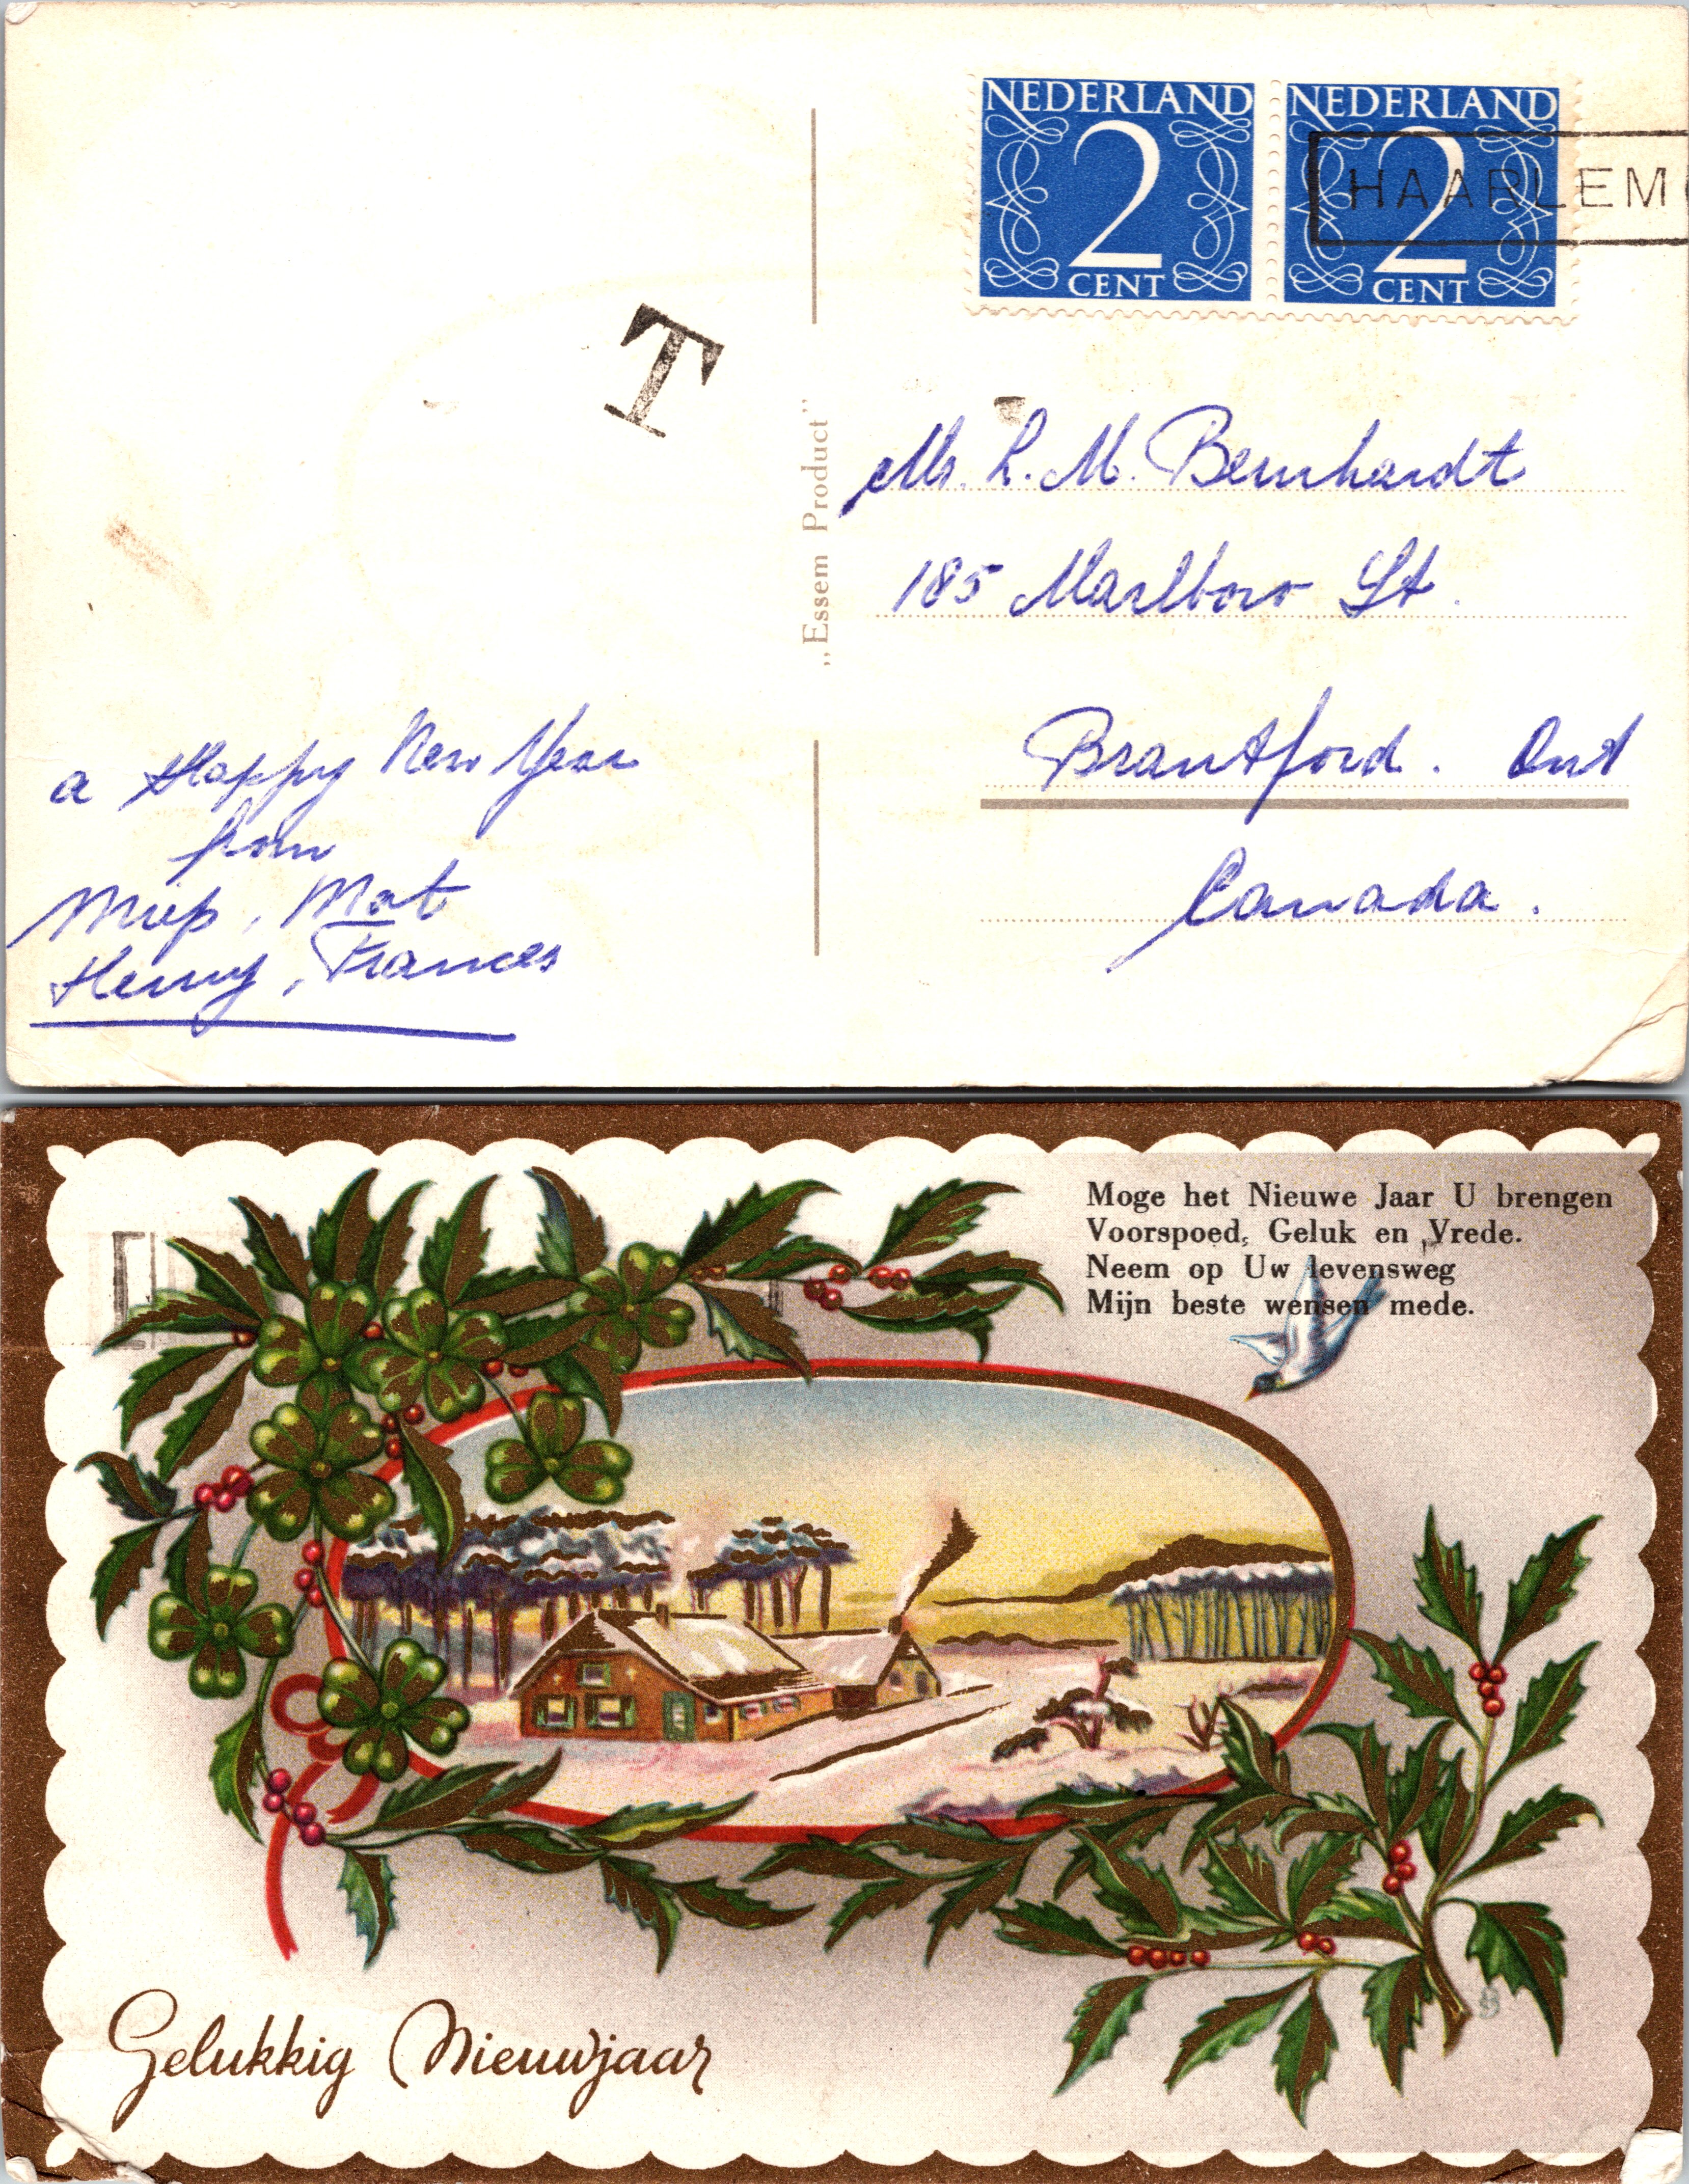 NEDERLAND NEDERLAND
2 2
CENT CENT
HAARLEM
T
„Essem Product”
Mr. L. M. Bernhardt
185 Marlboro St.
Brantford. Ont
Canada.
a Happy New Year
from
Miep, Mat
Henny, Frances
Moge het Nieuwe Jaar U brengen
Voorspoed, Geluk en Vrede.
Neem op Uw levensweg
Mijn beste wensen mede.
Gelukkig Nieuwjaar